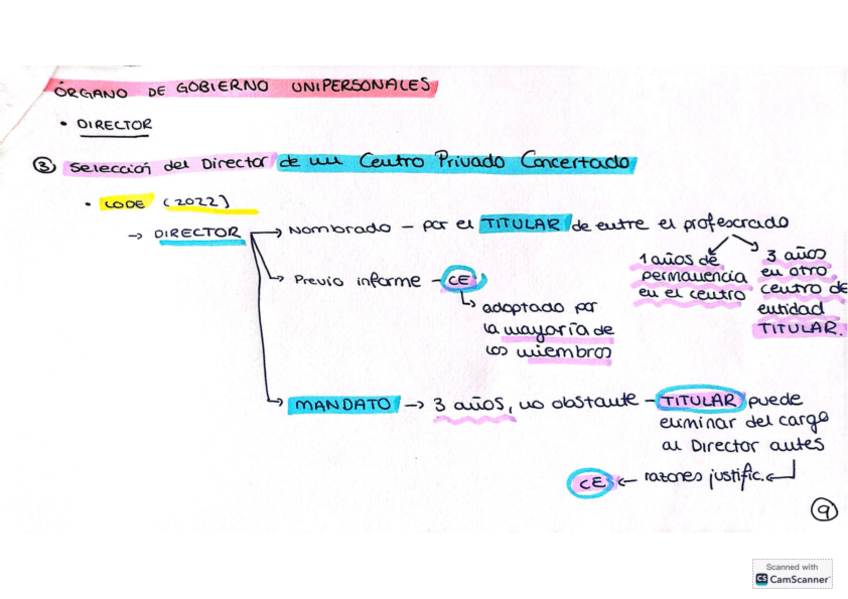 ÓRGANO DE GOBIERNO UNIPERSONALES
• DIRECTOR
③ Selección del Director de un Centro Privado Concertado
• LODE (2022)
→ DIRECTOR → Nombrado - por el TITULAR de entre el profesorado
1 años de permanencia en el centro
3 años en otro centro de entidad TITULAR.
→ Previo informe - CE
↳ adoptado por
la mayoría de
los miembros
→ MANDATO → 3 años, no obstante - TITULAR puede
eliminar del cargo
al Director antes
CE ← razones justific. ←
9
Scanned with
CS CamScanner